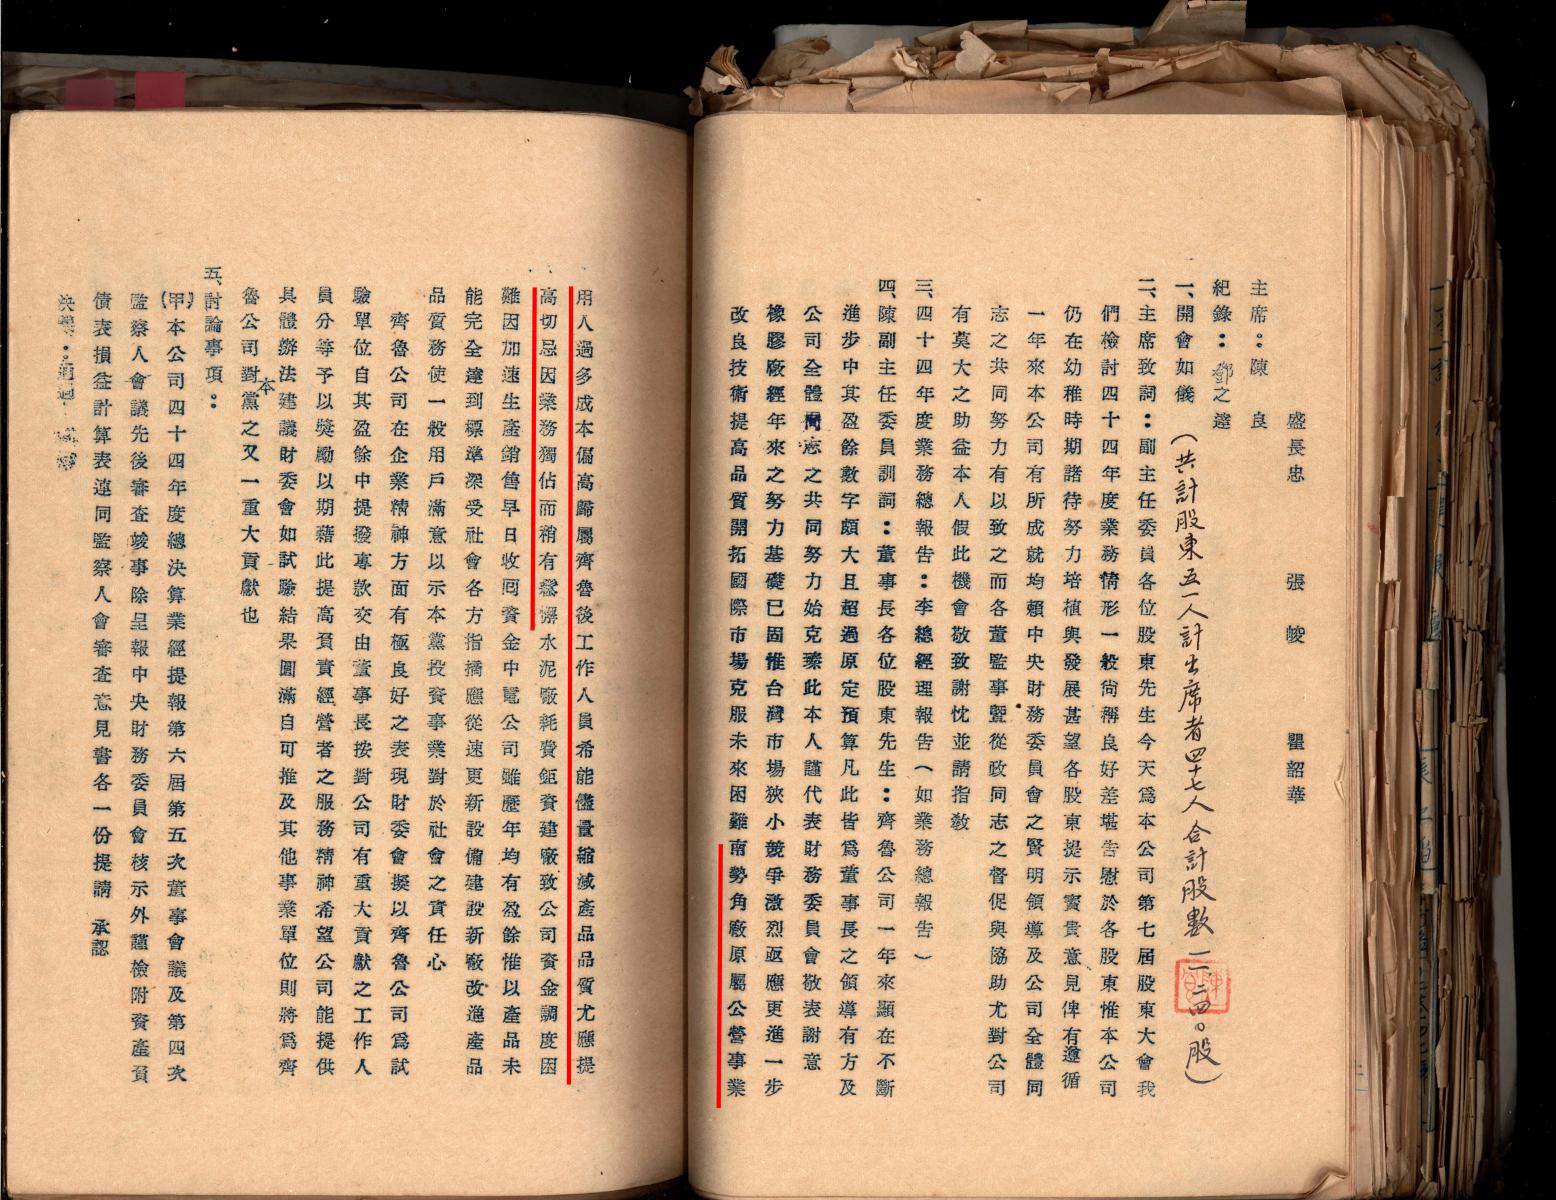 盛長忠 張峻 瞿韶華
主席：陳良
紀錄：鄧之邃
一、開會如儀（共計股東五一人計出席者四十七人合計股數一一二四〇股）
二、主席致詞：副主任委員各位股東先生今天爲本公司第七屆股東大會我
們檢討四十四年度業務情形一般尙稱良好差堪告慰於各股東惟本公司
仍在幼稚時期諸待努力培植與發展甚望各股東提示寳貴意見俾有遵循
一年來本公司有所成就均賴中央財務委員會之賢明領導及公司全體同
志之共同努力有以致之而各董監事暨從政同志之督促與協助尤對公司
有莫大之助益本人假此機會敬致謝忱並請指敎
三、四十四年度業務總報告：李總經理報告（如業務總報告）
四、陳副主任委員訓詞：董事長各位股東先生：齊魯公司一年來顯在不斷
進步中其盈餘數字頗大且超過原定預算凡此皆爲董事長之領導有方及
公司全體同志之共同努力始克臻此本人謹代表財務委員會敬表謝意
橡膠廠經年來之努力基礎已固惟台灣市場狹小競爭激烈亟應更進一步
改良技術提高品質開拓國際市場克服未來困難南勢角廠原屬公營事業
用人過多成本偏高歸屬齊魯後工作人員希能儘量縮減產品品質尤應提
高切忌因業務獨佔而稍有鬆懈水泥廠耗費鉅資建廠致公司資金調度困
難因加速生產銷售早日收囘資金中電公司雖歷年均有盈餘惟以產品未
能完全達到標準深受社會各方指摘應從速更新設備建設新廠改進產品
品質務使一般用戶滿意以示本黨投資事業對於社會之責任心
齊魯公司在企業精神方面有極良好之表現財委會擬以齊魯公司爲試
驗單位自其盈餘中提撥專款交由董事長按對公司有重大貢獻之工作人
員分等予以獎勵以期藉此提高負責經營者之服務精神希望公司能提供
具體辦法建議財委會如試驗結果圓滿自可推及其他事業單位則將爲齊
魯公司對本黨之又一重大貢獻也
五、討論事項：
（甲）本公司四十四年度總決算業經提報第六屆第五次董事會議及第四次
監察人會議先後審查竣事除呈報中央財務委員會核示外謹檢附資產負
債表損益計算表連同監察人會審查意見書各一份提請 承認
決議：通過